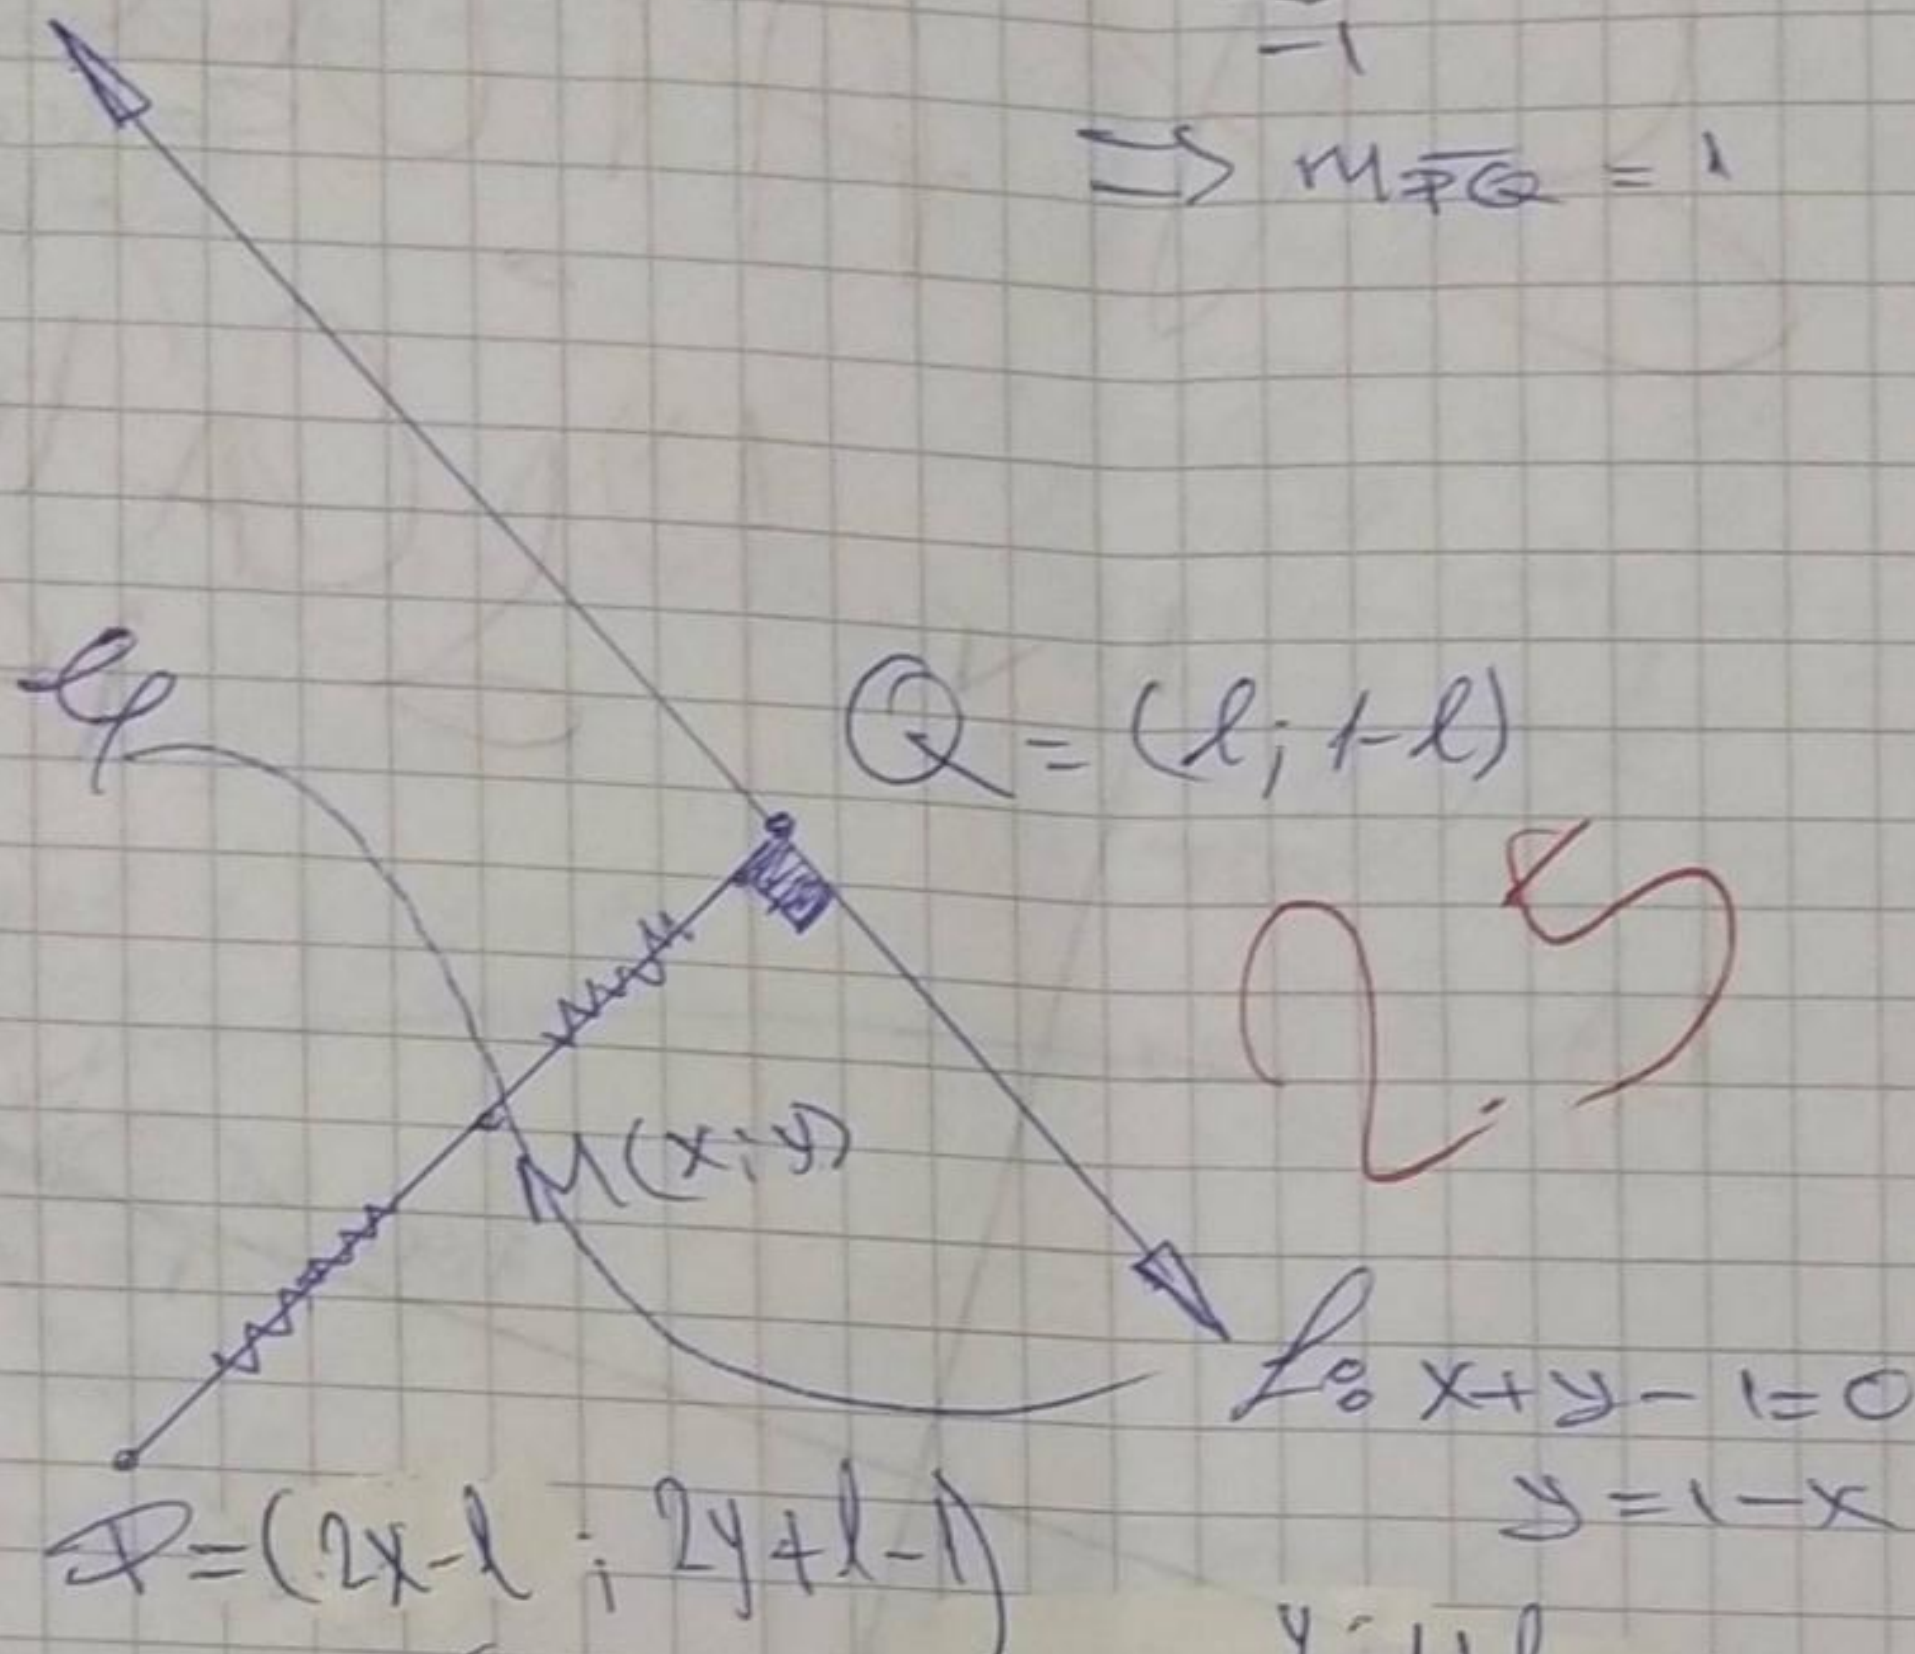 -1
⇒ m_PQ = 1
Q = (l; 1-l)
2.5
M(x; y)
L: x+y-1=0
y=1-x
P=(2x-l ; 2y+l-1)